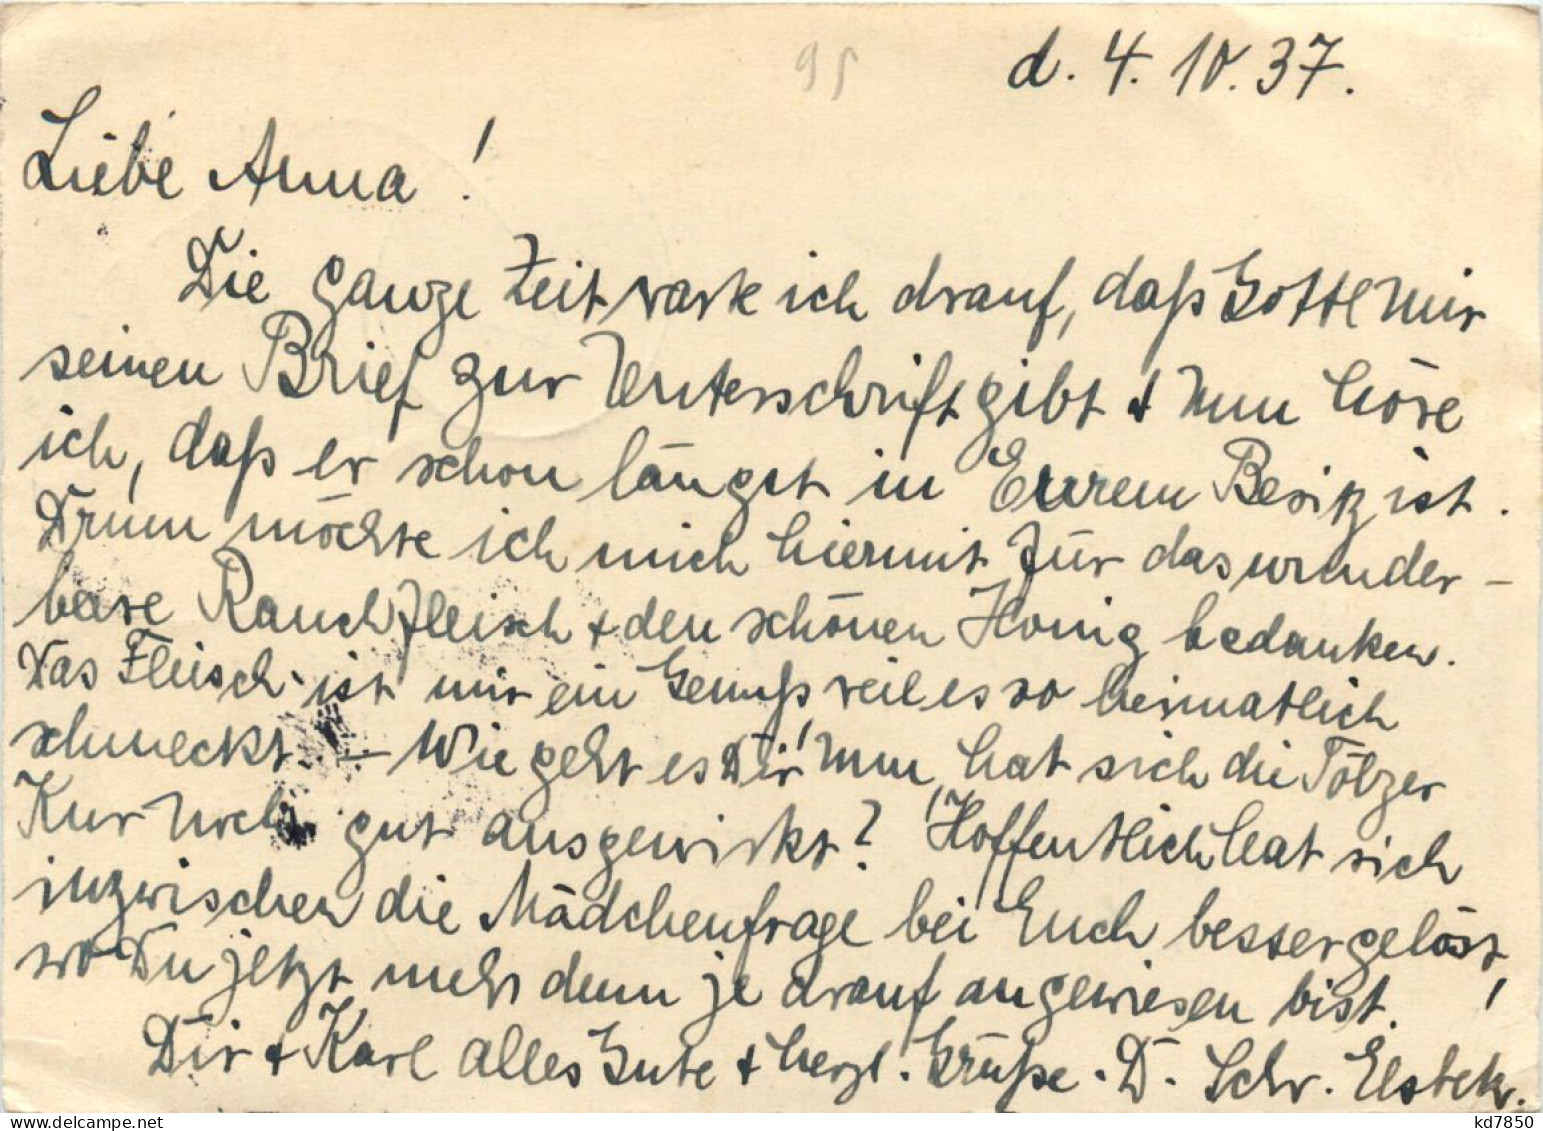 95
d. 4. 10. 37.
Liebe Anna!
Die ganze Zeit wart ich drauf, daß Gottl mir
seinen Brief zur Unterschrift gibt + nun höre
ich, daß er schon längst in Eurem Besitz ist.
Drum möchte ich mich hiermit für das wunder-
bare Rauchfleisch + den schönen Honig bedanken.
Das Fleisch ist mir ein Genuß weil es so heimatlich
schmeckt. – Wie geht es Dir nun, hat sich die Tölzer
Kur recht gut ausgewirkt? Hoffentlich hat sich
inzwischen die Mädchenfrage bei Euch besser gelöst,
wo Du jetzt mehr denn je darauf angewiesen bist.!
Dir + Karl alles Gute + herzl. Grüße. D. Schw.
kd7850
delcampe.net